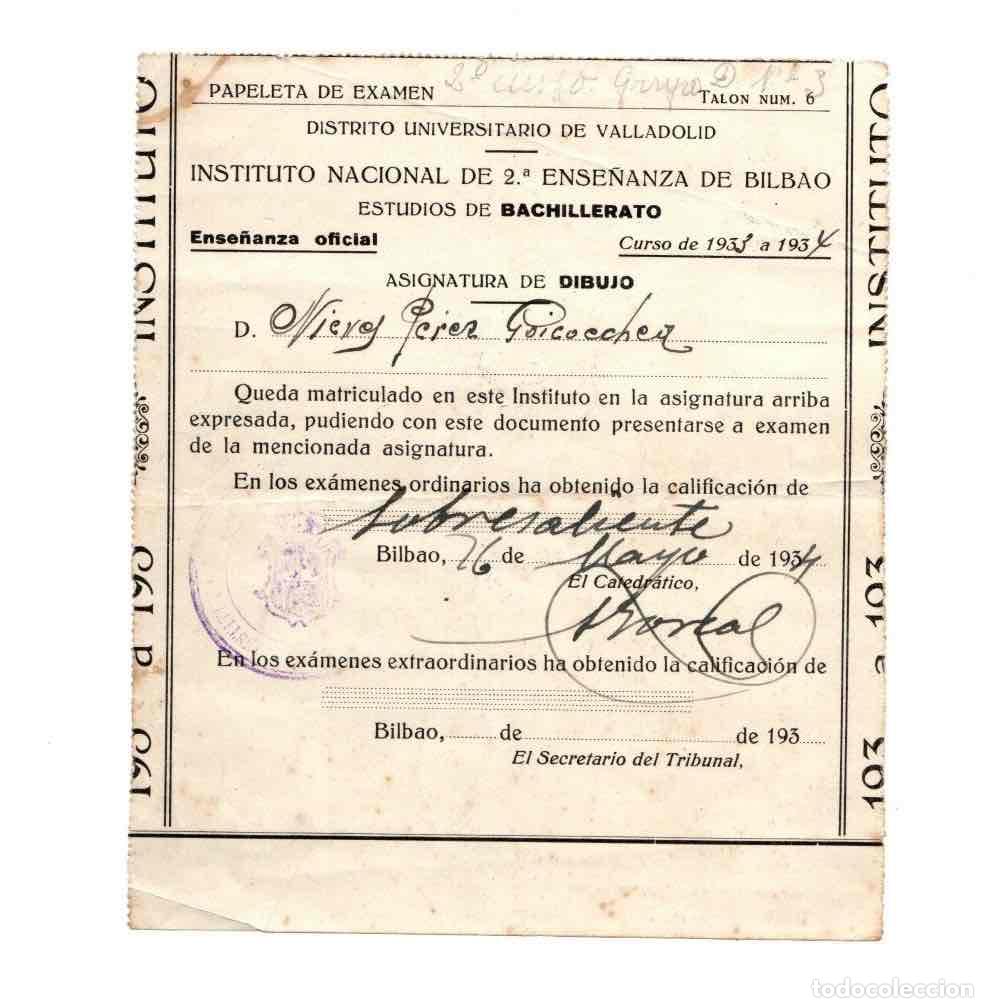 2º curso. Grupo D Nº 3
PAPELETA DE EXAMEN TALON NUM. 6
DISTRITO UNIVERSITARIO DE VALLADOLID
INSTITUTO NACIONAL DE 2.ª ENSEÑANZA DE BILBAO
ESTUDIOS DE BACHILLERATO
Enseñanza oficial Curso de 1933 a 1934
ASIGNATURA DE DIBUJO
D. Nieves Pérez Goicoechea
Queda matriculado en este Instituto en la asignatura arriba
expresada, pudiendo con este documento presentarse a examen
de la mencionada asignatura.
En los exámenes ordinarios ha obtenido la calificación de
Sobresaliente
Bilbao, 26 de Mayo de 1934
El Catedrático,
En los exámenes extraordinarios ha obtenido la calificación de
Bilbao, de de 193
El Secretario del Tribunal,
INSTITUTO
193 a 193
INSTITUTO
193 a 193
todocoleccion